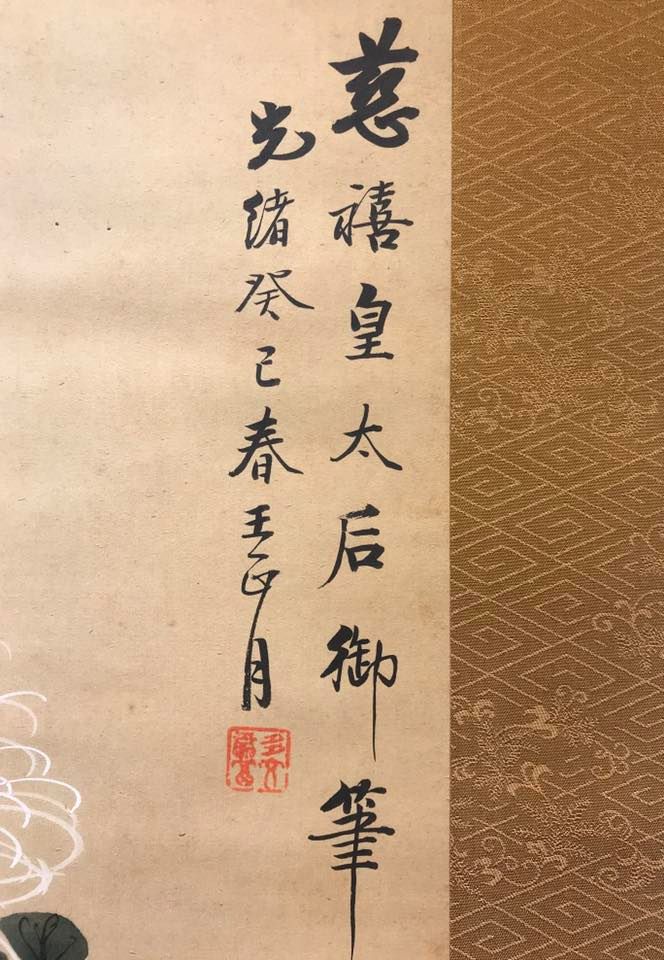 慈禧皇太后御筆
光緒癸巳春王正月